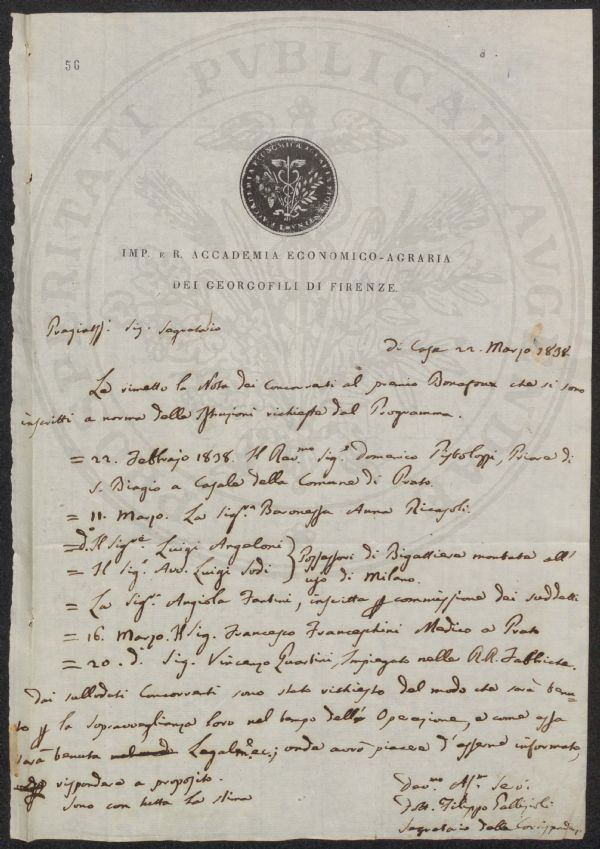 56
PROSPERITATI PVBLICAE AVGENDAE
IMP. E R. ACCADEMIA ECONOMICO-AGRARIA
DEI GEORGOFILI DI FIRENZE.
Pregiatss. Sig. Segretario
di Casa 22. Marzo 1838.
Le rimetto la Nota dei Concorrenti al premio Bonafoux che si sono
inscritti a norma delle Istruzioni richieste dal Programma.
= 22. Febbrajo 1838. Il Rev.mo Sig.e Domenico Priore di
S. Biagio a Casale della Comune di Prato.
= 11. Marzo. La Sig.ra Baronessa Anna Ricasoli.
= d.o Il Sig.re Luigi Angeloni
= Il Sig.e Avv. Luigi Sodi
Possessori di Bigattiera montata all'
uso di Milano.
= La Sig.ra Angiola Fantini, inscritta p commissione dei suddetti
= 16. Marzo. Il Sig. Francesco Franceschini Medico a Prato
= 20. d. Sig. Vincenzo Guastini, Impiegato nelle RR. Fabbriche.
Dai sullodati Concorrenti sono stato richiesto del modo che sarà tenu-
to p la sopravveglianza loro nel tempo dell' Operazione, e come essa
sarà tenuta Legalm.e ec.; onde avrò piacere d'esserne informato,
p rispondere a proposito.
Sono con tutta la stima
Dev.mo Aff.mo Ser.
Dott. Filippo Gallizioli
Segretario delle Corrispondenze